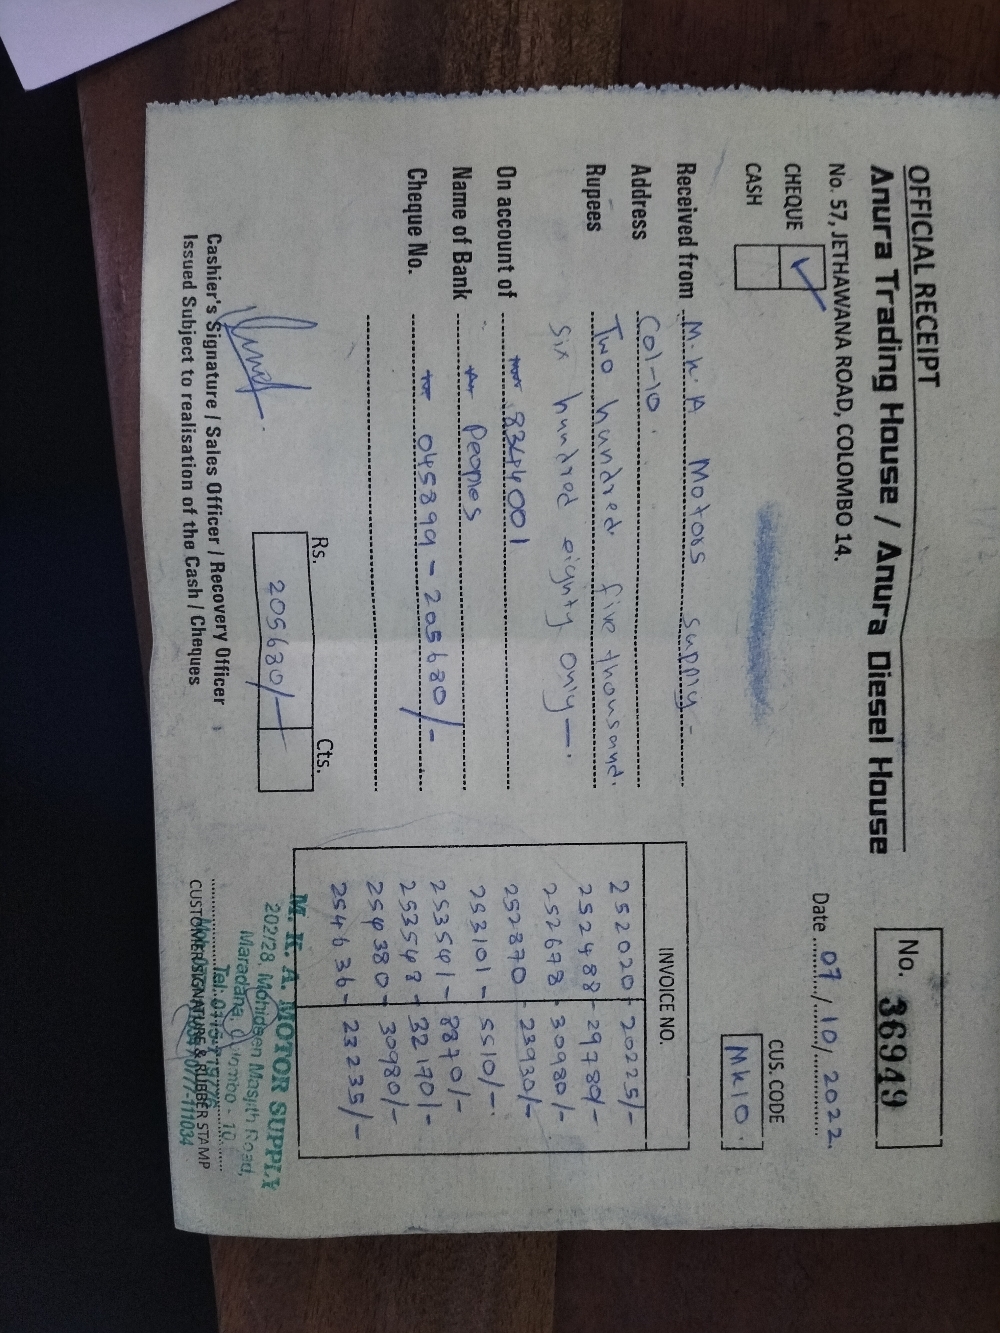 OFFICIAL RECEIPT
Anura Trading House / Anura Diesel House
No. 57, JETHAWANA ROAD, COLOMBO 14.
No. 36949
Date 07/10/2022
CHEQUE ✓
CASH
CUS. CODE
MK10.
Received from M.K.A Motors supply-
Address Col-10.
Rupees Two hundred five thousand
six hundred eighty only—.
On account of 8344001
Name of Bank Peoples
Cheque No. 045899 - 205680/-
Rs. Cts.
205680/-
INVOICE NO.
252020 - 20225/-
252488 - 29780/-
252678 - 30980/-
252870 - 23930/-
253101 - 5510/-.
253541 - 8870/-
253548 - 32170/-
254380 - 30980/-
254636 - 23235/-
Cashier's Signature / Sales Officer / Recovery Officer
Issued Subject to realisation of the Cash / Cheques
M. K. A. MOTOR SUPPLY
202/28, Mohideen Masjith Road,
Maradana, Colombo - 10.
CUSTOMER SIGNATURE & RUBBER STAMP